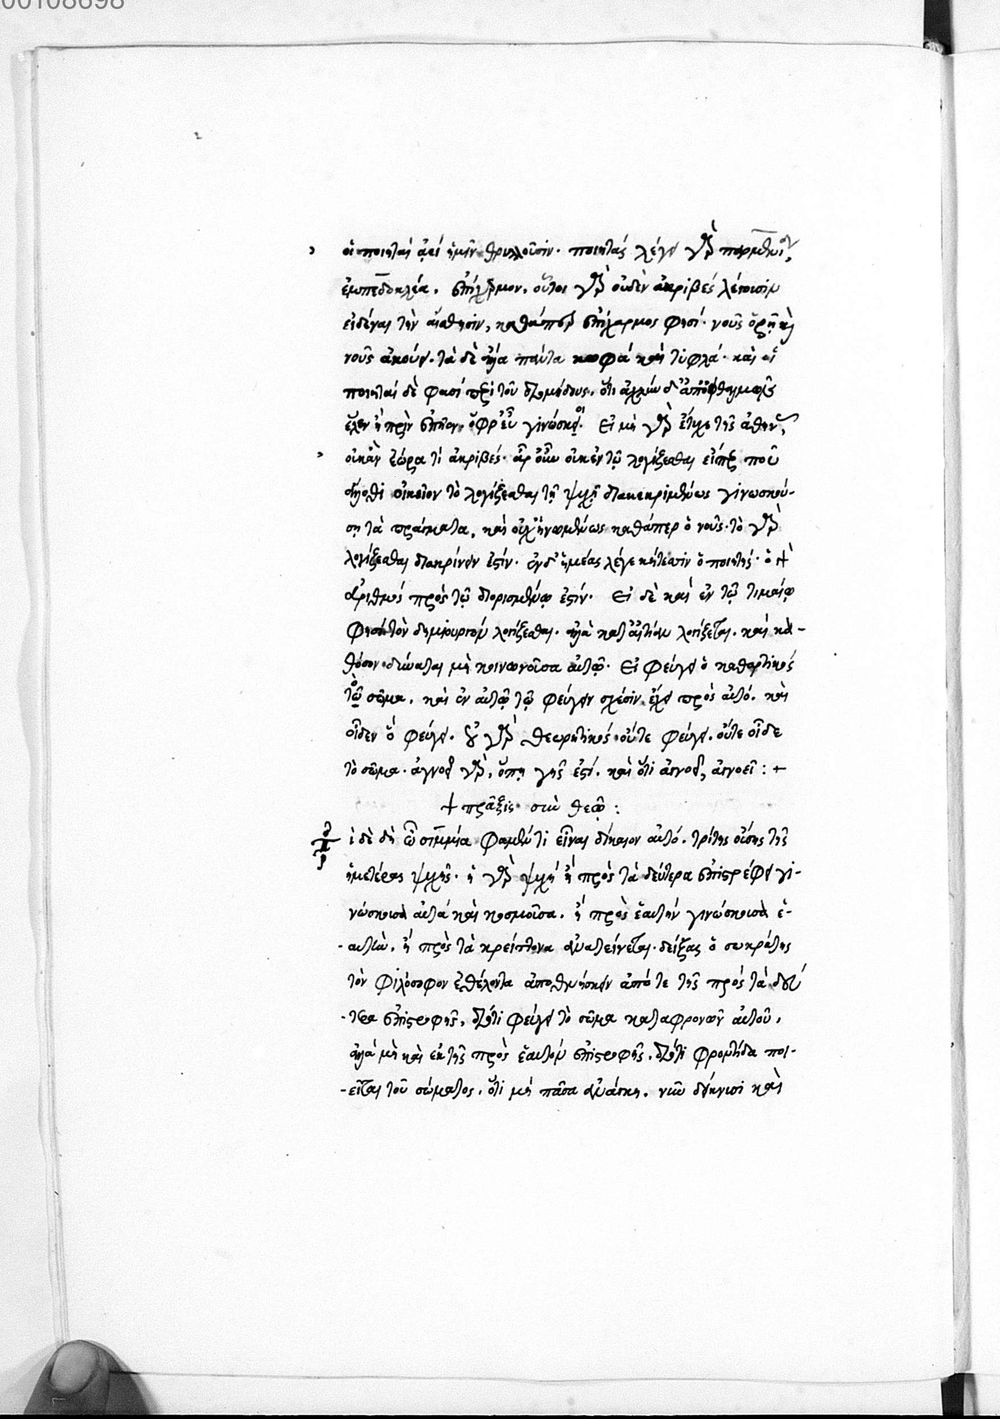 00108698
οἱ ποιηταὶ ἀεὶ ἡμῖν θρυλλοῦσιν· ποιητὰς λέγει γὰρ παρμενίδην,
ἐμπεδοκλέα, ἐπίχαρμον, οὗτοι γὰρ οὐδὲν ἀκριβὲς λέγουσιν
εἰδέναι τὴν αἴσθησιν, καθάπερ ἐπίχαρμος φησί· νοῦς ὁρῇ καὶ
νοῦς ἀκούει· τὰ δὲ ἄλλα πάντα κωφὰ καὶ τυφλά· καὶ οἱ
ποιηταὶ δὲ φασὶ περὶ τοῦ διομήδους, ὅτι ἀχλὺν δ' ἀπ' ὀφθαλμῶν
ἕλον ἣ πρὶν ἐπῆεν, ὄφρ' εὖ γινώσκοι. Εἰ μὴ γὰρ ἔτυχε τῆς ἀθηνᾶς,
οὐκ ἂν ἑώρα τί ἀκριβές· ἆρ' οὖν οὐκ ἐν τῷ λογίζεσθαι εἴπερ που
δηλοῖ οἰκεῖον τὸ λογίζεσθαι τῇ ψυχῇ διακεκριμένως γινωσκού-
σῃ τὰ πράγματα, καὶ οὐχ ἡνωμένως καθάπερ ὁ νοῦς· τὸ γὰρ
λογίζεσθαι διακρίνειν ἐστίν· ἐνδ' ἡμέας λέγε κήτεσιν ὁ ποιητής· ὁ
ἀριθμὸς πρὸς τῷ διορισμένῳ ἐστίν. Εἰ δὲ καὶ ἐν τῷ τιμαίῳ
φησὶ τὸν δημιουργὸν λογίζεσθαι, ἀλλὰ κατ' αἰτίαν λογίζεται. καὶ κα-
θόσον δύναται μὴ κοινωνοῦσα αὐτῷ. Εἰ φεύγει ὁ καθαρτικὸς
τὸ σῶμα, καὶ ἐν αὐτῷ τῷ φεύγειν σχέσιν ἔχει πρὸς αὐτό, καὶ
οἶδεν ὃ φεύγει. ὁ γὰρ θεωρητικὸς οὔτε φεύγει, οὔτε οἶδε
τὸ σῶμα· ἀγνοεῖ γὰρ, ὅπη γῆς ἐστί, καὶ ὅτι ἀγνοεῖ, ἀγνοεῖ :+
+ πρᾶξις σὺν θεῷ :
ἰδὲ δὴ ὦ σιμμία φαμέν τι εἶναι δίκαιον αὐτό. τρίτης οὔσης τῆς
ἡμετέρας ψυχῆς· ἡ γὰρ ψυχὴ ἢ πρὸς τὰ δεύτερα ἐπιστρέφει γι-
νώσκουσα αὐτὰ καὶ κοσμοῦσα, ἢ πρὸς ἑαυτὴν γινώσκουσα ἑ-
-αυτὴν, ἢ πρὸς τὰ κρείττονα ἀνατείνεται· δείξας ὁ σωκράτης
τὸν φιλόσοφον ἐθέλοντα ἀποθνήσκειν ἀπό τε τῆς πρὸς τὰ δεύ
-τερα ἐπιστροφῆς, διότι φεύγει τὸ σῶμα καταφρονῶν αὐτοῦ,
ἀλλὰ μὴν καὶ ἐκ τῆς πρὸς ἑαυτὸν ἐπιστροφῆς, διότι φροντίδα ποι-
-εῖται τοῦ σώματος, ὅτι μὴ πᾶσα ἀνάγκη, νῦν δείκνυσι καὶ